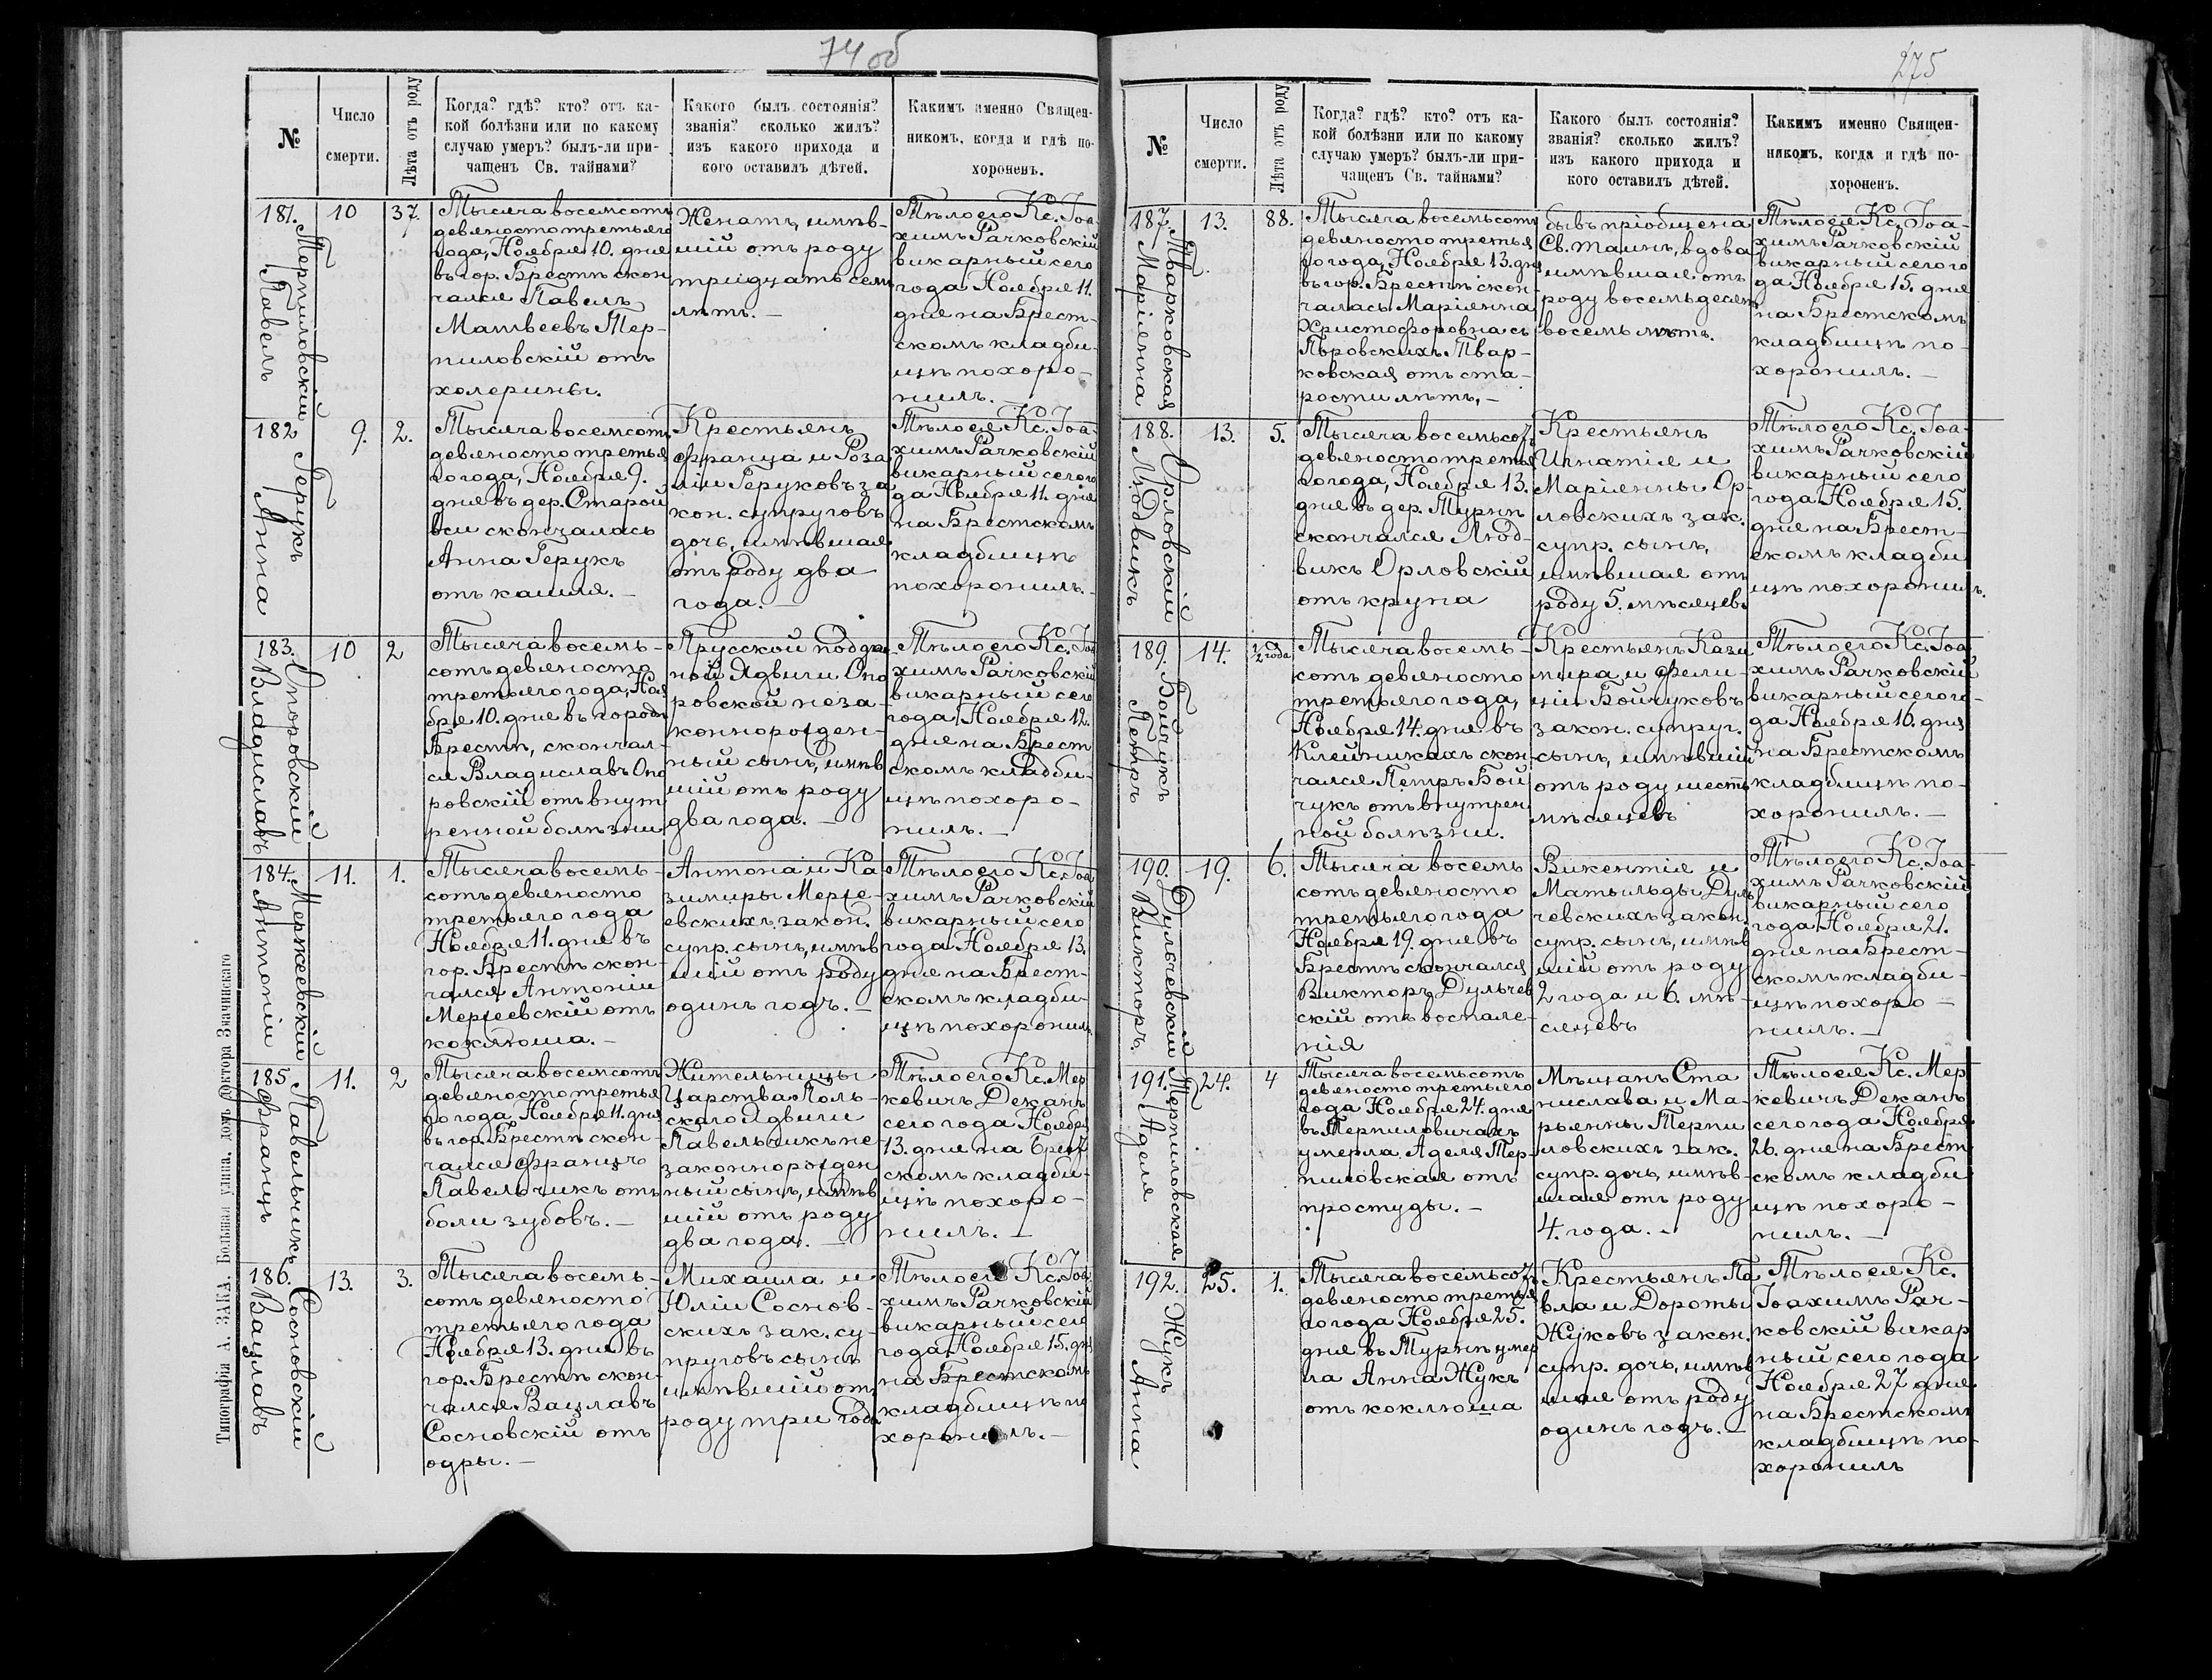 74 об
№
Число
смерти.
Лѣта отъ роду
Когда? гдѣ? кто? отъ ка-
кой болѣзни или по какому
случаю умеръ? былъ-ли при-
чащенъ Св. тайнами?
Какого былъ состоянія?
званія? сколько жилъ?
изъ какого прихода и
кого оставилъ дѣтей.
Какимъ именно Священ-
никомъ, когда и гдѣ по-
хороненъ.
181.
Терпиловскій
Павелъ
10
37.
Тысяча восемсотъ
девяносто третьяго
года, Ноября 10. дня
въ гор. Брестѣ скон
чался Павелъ
Матвеевъ Тер-
пиловскій отъ
холерины.
Женатъ, имѣв-
шій отъ роду
тридцать семь
лѣтъ. —
Тѣло его Кс. Іоа-
химъ Рачковскій
викарный сего
года Ноября 11.
дня на Брест-
скомъ кладби-
щѣ похоро-
нилъ. —
182
Герукъ
Анна
9.
2.
Тысяча восемсотъ
девяносто третья
го года, Ноября 9.
дня въ дер. Старой
вси скончалась
Анна Герукъ
отъ кашля. —
Крестьянъ
Франца и Роза
ліи Геруковъ за
кон. супруговъ
дочь, имѣвшая
отъ роду два
года. —
Тѣло ея Кс. Іоа-
химъ Рачковскій
викарный сего го
да Ноября 11. дня
на Брестскомъ
кладбищѣ
похоронилъ. —
183.
Опоровскій
Владиславъ
10
2
Тысяча восемь-
сотъ девяносто
третьяго года, Ноя
бря 10. дня въ городѣ
Брестѣ, скончал-
ся Владиславъ Опо
ровскій отъ внут
ренной болѣзни
Прусской поддан
ной Ядвиги Опо
ровской неза-
коннорожден-
ный сынъ, имѣв
шій отъ роду
два года. —
Тѣло его Кс. Іоа
химъ Рачковскій
викарный сего
года Ноября 12.
дня на Брест
скомъ кладби-
щѣ похоро-
нилъ. —
184.
Мержеевскій
Антоній
11.
1.
Тысяча восемь-
сотъ девяносто
третьяго года
Ноября 11. дня въ
гор. Брестѣ скон-
чался Антоній
Мержеевскій отъ
коклюша. —
Антона и Ка
зимиры Мерже-
евскихъ закон.
супр. сынъ, имѣв
шій отъ роду
одинъ годъ. —
Тѣло его Кс. Іоа
химъ Рачковскій
викарный сего
года Ноября 13.
дня на Брест-
скомъ кладби-
щѣ похоронилъ
185
Павельчикъ
Францъ
11.
2
Тысяча восемсотъ
девяносто третья
го года, Ноября 11. дня
въ гор. Брестѣ скон-
чался Францъ
Павельчикъ отъ
боли зубовъ. —
Жительницы
Царства Поль-
скаго Ядвиги
Павельчикъ не-
законнорожден
ный сынъ, имѣв
шій отъ роду
два года. —
Тѣло его Кс. Мер
кевичъ Деканъ
сего года Ноября
13. дня на Брест
скомъ кладби-
щѣ похоро-
нилъ. —
186.
Сосновскій
Вацлавъ
13.
3.
Тысяча восемь-
сотъ девяносто
третьяго года
Ноября 13. дня въ
гор. Брестѣ скон-
чался Вацлавъ
Сосновскій отъ
одры. —
Михаила и
Юліи Соснов-
скихъ зак. су-
пруговъ сынъ
имѣвшій отъ
роду три года
Тѣло его Кс. Іоа
химъ Рачковскій
викарный сего
года, Ноября 15. дня
на Брестскомъ
кладбищѣ по
хоронилъ. —
Типографія А. ЗАКА. Большая улица, домъ доктора Значинскаго
275
№
Число
смерти.
Лѣта отъ роду
Когда? гдѣ? кто? отъ ка-
кой болѣзни или по какому
случаю умеръ? былъ-ли при-
чащенъ Св. тайнами?
Какого былъ состоянія?
званія? сколько жилъ?
изъ какого прихода и
кого оставилъ дѣтей.
Какимъ именно Священ-
никомъ, когда и гдѣ по-
хороненъ.
187.
Тварковская
Маріянна
13.
88.
Тысяча восемьсотъ
девяносто третья
го года, Ноября 13. дня
въ гор. Брестѣ скон-
чалась Маріянна
Христофоровна съ
Пѣровскихъ Твар-
ковская отъ ста-
рости лѣтъ, —
бывъ пріобщена
Св. таинъ, вдова
имѣвшая отъ
роду восемьдесятъ
восемь лѣтъ.
Тѣло ея Кс. Іоа-
химъ Рачковскій
викарный сего го
да Ноября 15. дня
на Брестскомъ
кладбищѣ по-
хоронилъ. —
188.
Орловскій
Людвикъ
13.
5.
Тысяча восемьсотъ
девяносто третья
го года, Ноября 13.
дня въ дер. Турнѣ
скончался Люд-
викъ Орловскій
отъ крупа
Крестьянъ
Игнатія и
Маріянны Ор-
ловскихъ зак.
супр. сынъ,
имѣвшая отъ
роду 5. мѣсяцевъ
Тѣло его Кс. Іоа-
химъ Рачковскій
викарный сего
года Ноября 15.
дня на Брест-
скомъ кладби
щѣ похоронилъ.
189.
Бойчукъ
Петръ
14.
1/2 года
Тысяча восемь-
сотъ девяносто
третьяго года,
Ноября 14. дня въ
Клейникахъ скон
чался Петръ Бой
чукъ отъ внутрен
ной болѣзни.
Крестьянъ Кази
мира и Фели-
ціи Бойчуковъ
закон. супруг.
сынъ, имѣвшій
отъ роду шесть
мѣсяцевъ
Тѣло его Кс. Іоа
химъ Рачковскій
викарный сего го-
да Ноября 16. дня
на Брестскомъ
кладбищѣ по-
хоронилъ. —
190.
Дульчевскій
Викторъ.
19.
6.
Тысяча восемь
сотъ девяносто
третьяго года
Ноября 19. дня въ
Брестѣ скончался
Викторъ Дульчев
скій отъ воспале-
нія
Викентія и
Матыльды Дуль
чевскихъ закон.
супр. сынъ, имѣв
шій отъ роду
2 года и 6. мѣ-
сяцевъ
Тѣло его Кс. Іоа-
химъ Рачковскій
викарный сего
года Ноября 21.
дня на Брест-
скомъ кладби-
щѣ похоро-
нилъ. —
191.
Терпиловская
Аделя
24.
4
Тысяча восемьсотъ
девяносто третьяго
года Ноября 24. дня
въ Терпиловичахъ
умерла Аделя Тер-
пиловская отъ
простуды. —
Мѣщанъ Ста
нислава и Ма-
рьянны Терпи
ловскихъ зак.
супр. дочь, имѣв-
шая отъ роду
4. года. —
Тѣло ея Кс. Мер
кевичъ Деканъ
сего года Ноября
26. дня на Брест
скомъ кладби
щѣ похоро-
нилъ. —
192.
Жукъ
Анна
25.
1.
Тысяча восемьсотъ
девяносто третья
го года Ноября 25.
дня въ Турнѣ умер
ла Анна Жукъ
отъ коклюша
Крестьянъ Па
вла и Дороты
Жуковъ закон.
супр. дочь, имѣв
шая отъ роду
одинъ годъ. —
Тѣло ея Кс.
Іоахимъ Рач-
ковскій викар
ный сего года
Ноября 27 дня
на Брестскомъ
кладбищѣ по-
хоронилъ